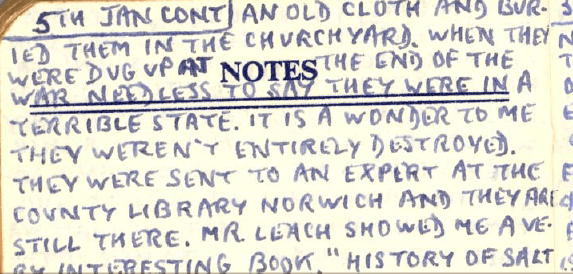 5TH JAN CONT AN OLD CLOTH AND BUR-
IED THEM IN THE CHURCHYARD. WHEN THEY
WERE DUG UP AT NOTES THE END OF THE
WAR NEEDLESS TO SAY THEY WERE IN A
TERRIBLE STATE. IT IS A WONDER TO ME
THEY WEREN'T ENTIRELY DESTROYED.
THEY WERE SENT TO AN EXPERT AT THE
COUNTY LIBRARY NORWICH AND THEY ARE
STILL THERE. MR. LEACH SHOWED ME A VE-
RY INTERESTING BOOK "HISTORY OF SALT